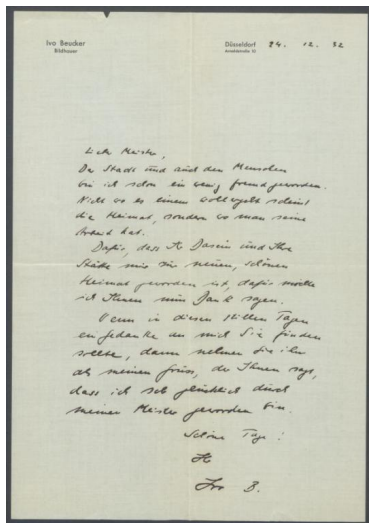 Ivo Beucker
Bildhauer
Düsseldorf 24. 12. 32
Lieber Meister,
Der Stadt und auch den Menschen
bin ich schon ein wenig fremd geworden.
Nicht wo es einem wohl ergeht scheint
die Heimat, sondern wo man seine
Arbeit hat.
Dafür, dass Ihr Dasein und Ihre
Stätte mir zur neuen, schönen
Heimat geworden ist, dafür möchte
ich Ihnen meinen Dank sagen.
Wenn in diesen stillen Tagen
ein Gedanke von mir Sie finden
sollte, dann nehmen Sie ihn
als meinen Gruss, der Ihnen sagt,
dass ich sehr glücklich durch
meinen Meister geworden bin.
Schöne Tage!
Ihr
Ivo B.